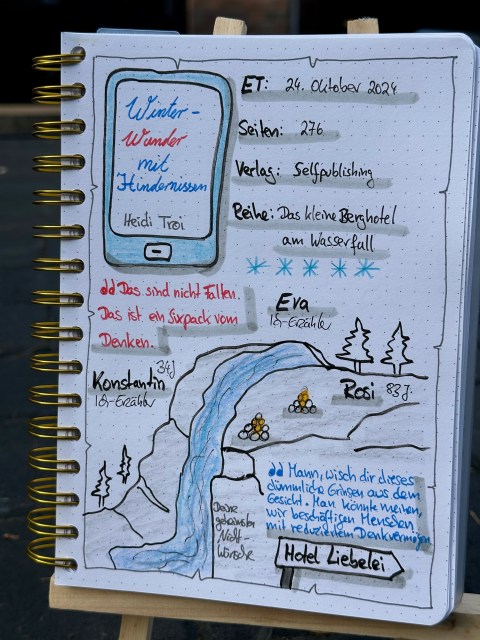 Winter-
Wunder
mit
Hindernissen
Heidi Troi
ET: 24. Oktober 2024
Seiten: 276
Verlag: Selfpublishing
Reihe: Das kleine Berghotel
am Wasserfall
Das sind nicht Falten.
Das ist ein Sixpack vom
Denken.
Eva
Ich-Erzähler
Konstantin 34J
Ich-Erzähler
Rosi 83J.
Mann, wisch dir dieses
dümmliche Grinsen aus dem
Gesicht. Man könnte meinen,
wir beschäftigen Menschen
mit reduziertem Denkvermögen
Deine
geheimsten
Nicht-
Wünsche
Hotel Liebelei